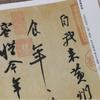 自我來黃州
食年〻
容惜今年